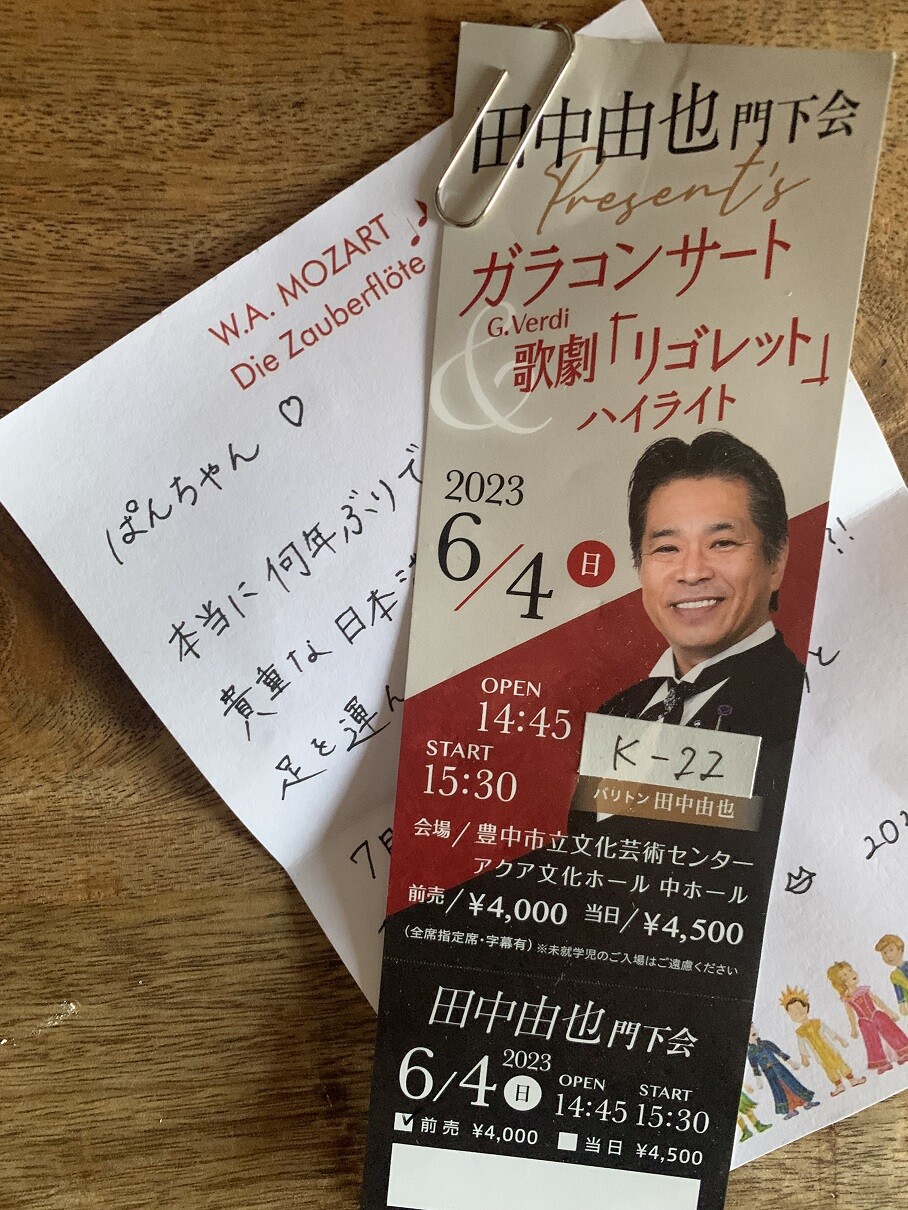 田中由也 門下会
Present's
ガラコンサート
&
G.Verdi
歌劇「リゴレット」
ハイライト
2023
6/4 日
OPEN
14:45
START
15:30
K-22
バリトン 田中由也
会場/豊中市立文化芸術センター
アクア文化ホール 中ホール
前売/¥4,000 当日/¥4,500
(全席指定席・字幕有) ※未就学児のご入場はご遠慮ください
田中由也 門下会
6/4 2023 日 OPEN 14:45 START 15:30
前売 ¥4,000 当日 ¥4,500
W.A. MOZART
Die Zauberflöte
ぱんちゃん♡
本当に何年ぶりで
!!
貴重な日本
と
足を運ん
7
202